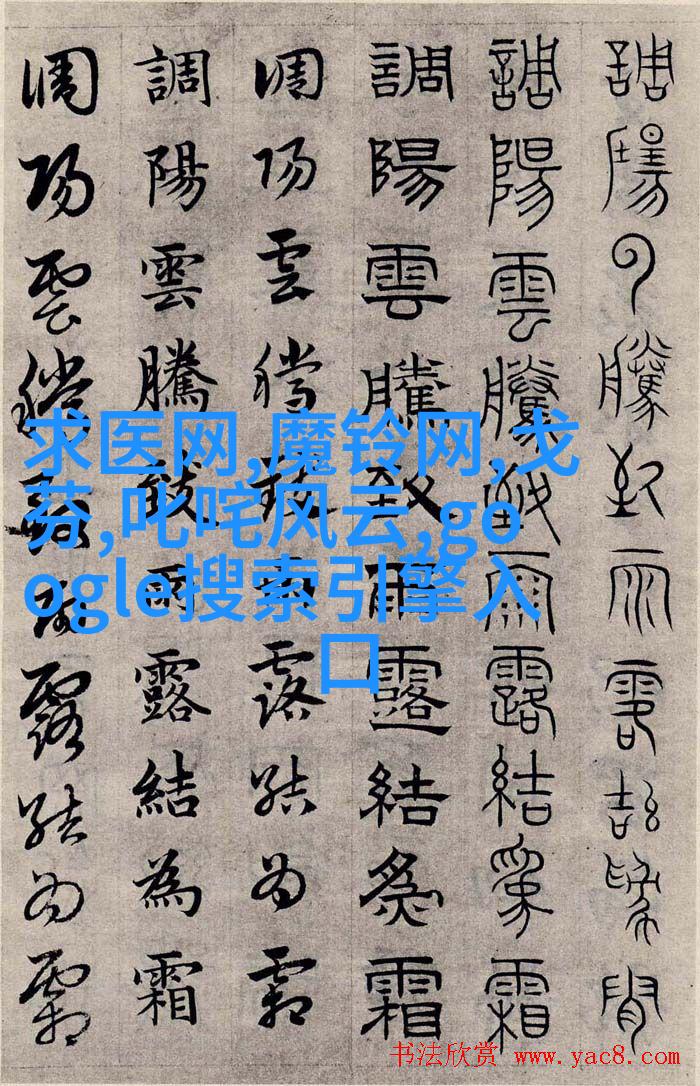 調陽雲騰致雨露結為霜
調陽雲騰致雨露結為霜
調陽雲騰致雨露結為霜
調陽雲騰致雨露結為霜
調陽雲騰致雨露結為霜
調陽雲騰致雨露結為霜
求医网,魔铃网,戈
芬,叱咤风云,go
ogle搜索引擎入
口
书法欣赏 www.yac8.com